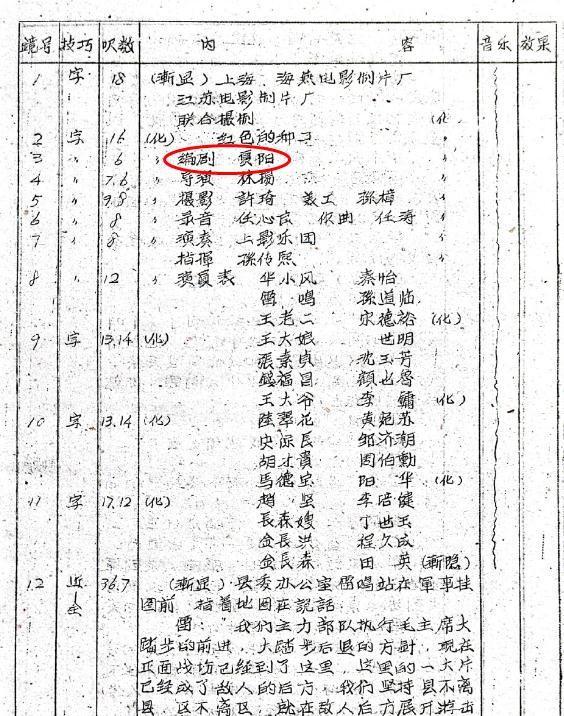 鏡号 技巧 呎数 內 容 音乐 效果
1 字 18 (漸显) 上海 海燕电影制片厂
江苏电影制片厂
联合摄制 (化
2 字 16 (化) 红色的种子 〃
3 〃 6 〃 编剧 夏阳 〃
4 〃 7.6 〃 导演 林揚 〃
5 〃 9.8 〃 攝影 許琦 美工 孫樟 〃
6 〃 8 〃 录音 任心良 作曲 任海 〃
7 〃 8 〃 演奏 上影乐团 〃
指揮 孫传熙
8 〃 12 〃 演員表 华小风 秦怡
雷鳴 孫道临
王老二 宋德裕 (化)
9 字 13.14 (化) 王大娘 世明
張素貞 沈玉芳
錢福昌 顧也魯
王大爷 李鏞 (化)
10 字 13.14 (化) 陸翠花 黄宛苏
史保長 邹济潮
胡才貴 周伯勳
馬德宝 阳华 (化)
11 字 17.12 (化) 趙坚 李培健
長森嫂 丁世玉
金長洪 程久成
金長森 田英 (漸隐)
12 近 36.7 (漸显) 县委办公室 雷鳴站在軍事挂
全 图前 指着地图在説話
雷: 我们主力部队执行毛主席大
踏步的前进 大踏步后退的方針 現在
正面战场已经到了这里 这里的一大片
已经成了敌人的后方 我们坚持县不离
县 区不离区 就在敌人后方展开游击